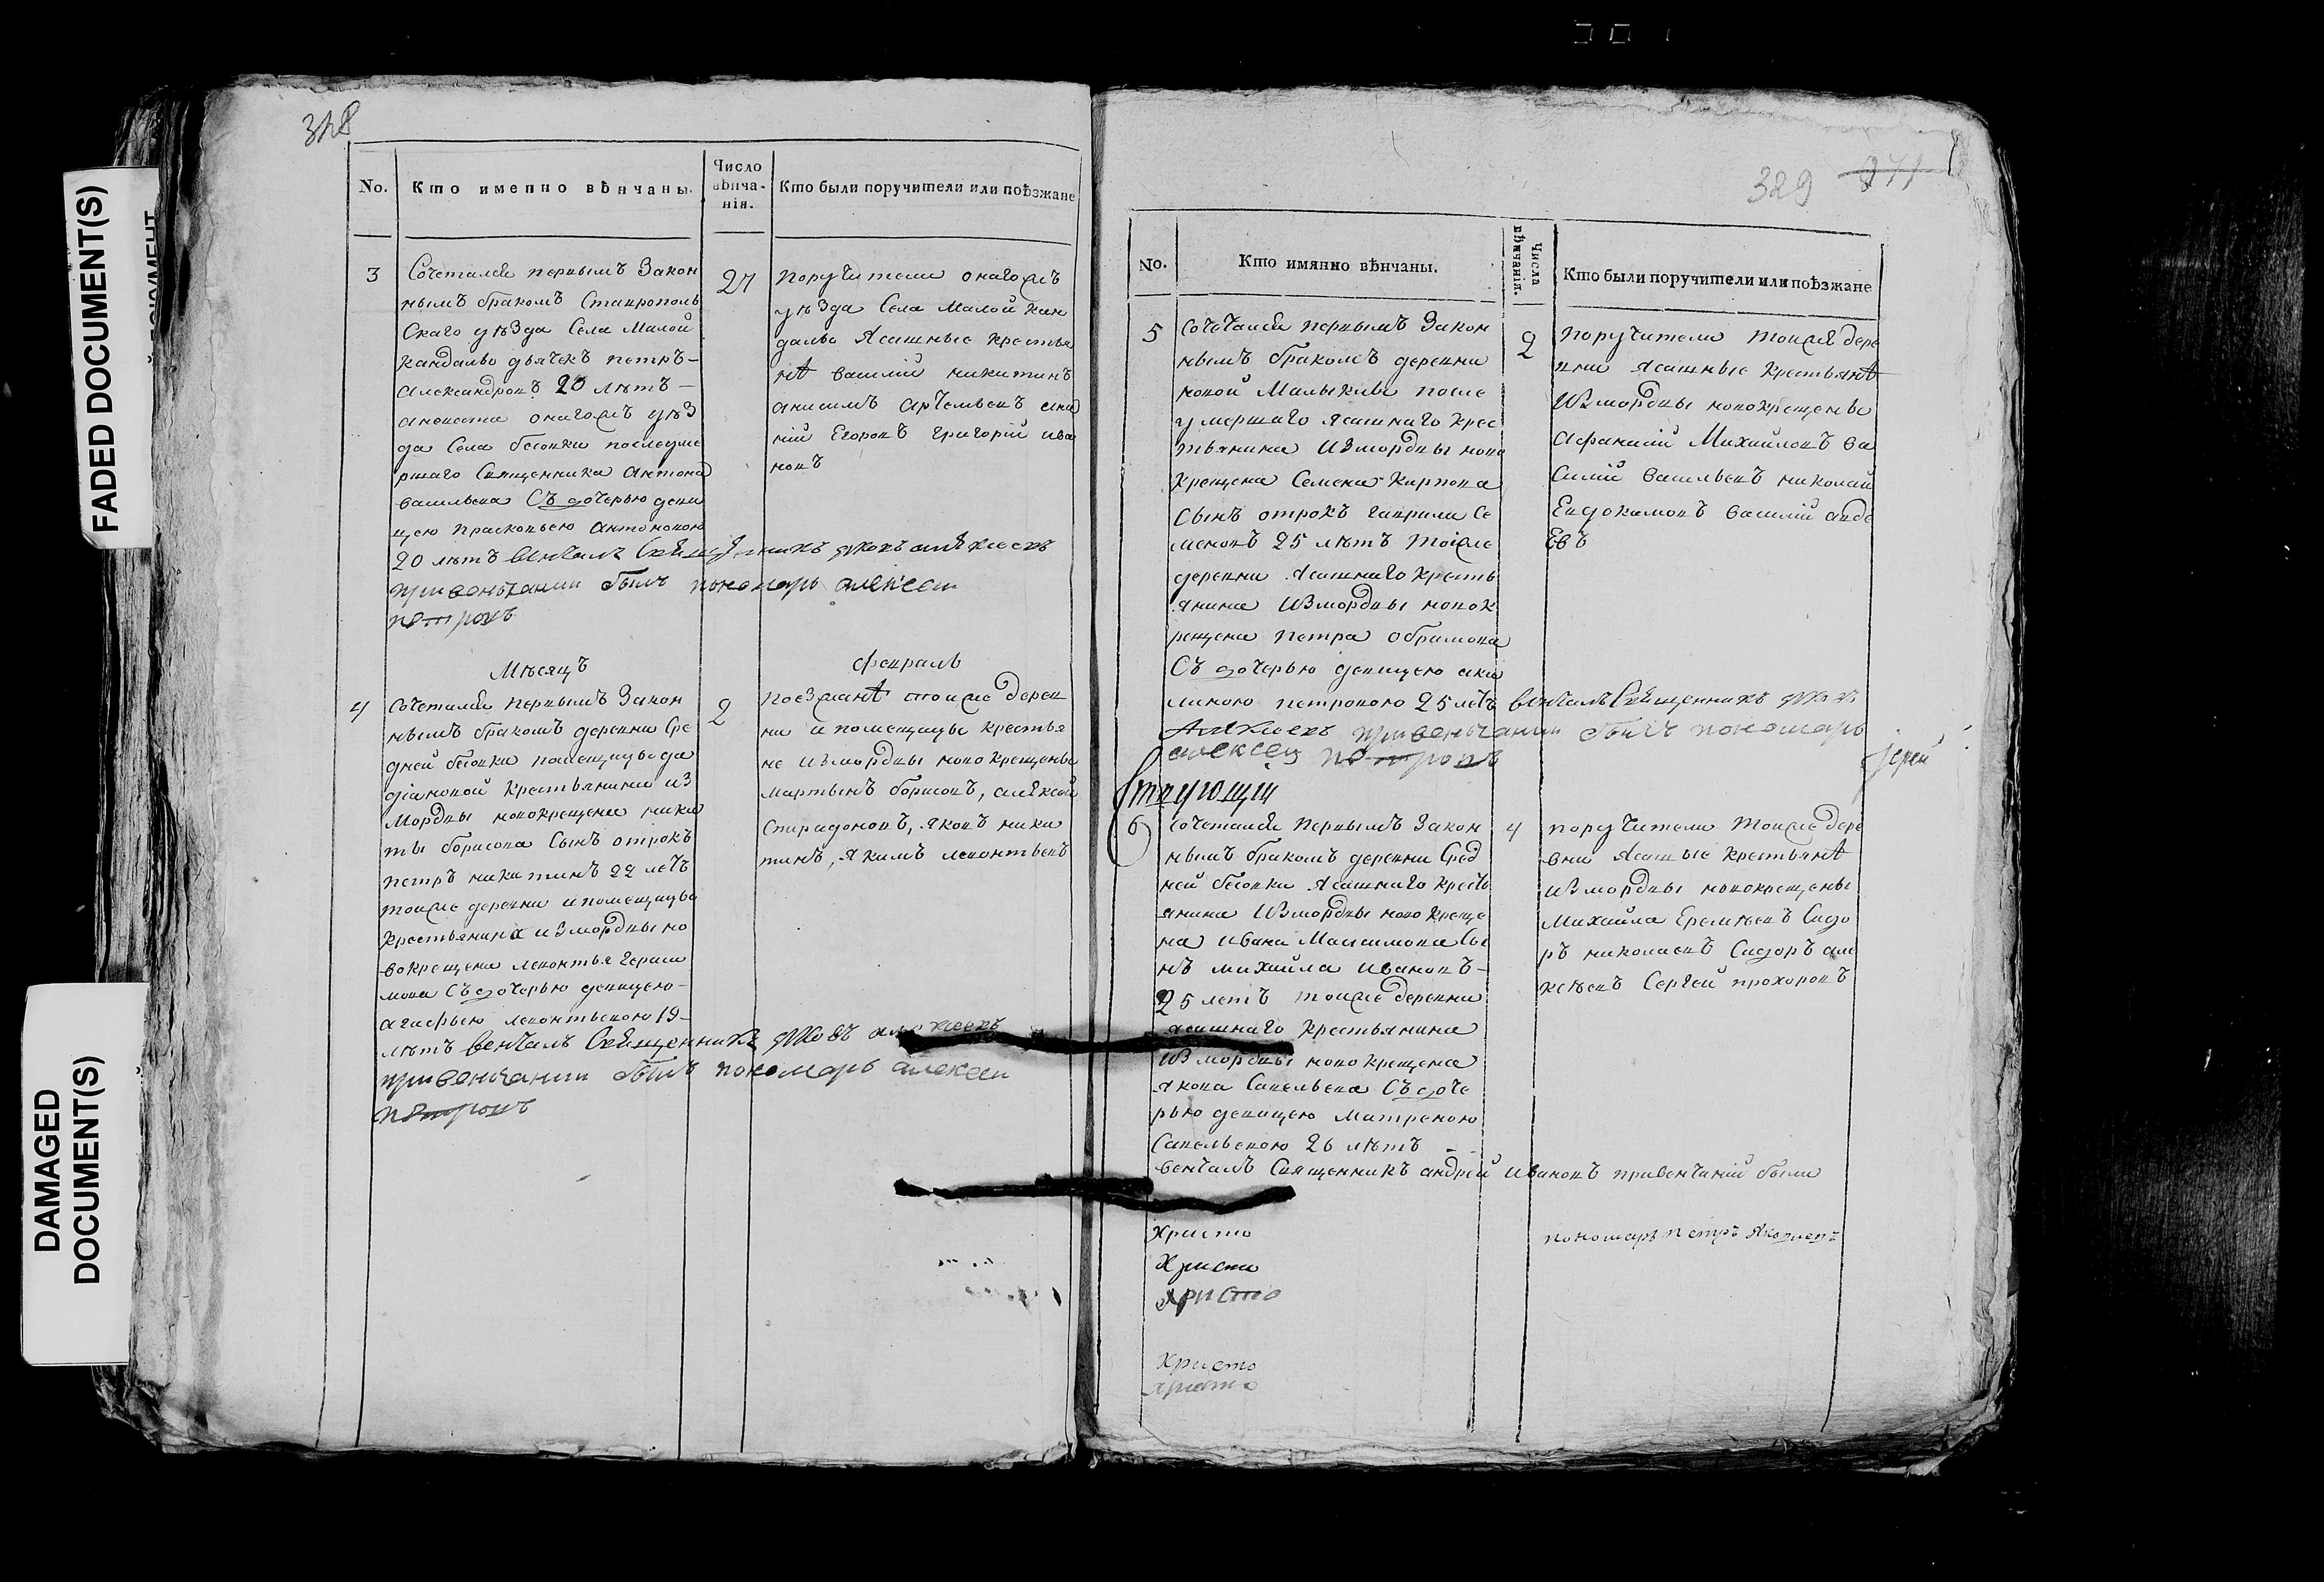 FADED DOCUMENT(S)
DAMAGED
DOCUMENT(S)
328
No.
Кто именно вѣнчаны.
Число
вѣнча-
нія.
Кто были поручители или поѣзжане
3
Сочетался первымъ Закон
нымъ бракомъ Ставрополь
Скаго уѣзда Села Малой
Кандалы дьячекъ петръ-
александровъ 20 лѣтъ-
аневѣста онагожъ уѣз
да Села бесовки послеуме
ршаго Священника антона
васильева Съ дочерью деви
цею прасковьею антоновою
20 лѣтъ венчалъ Священникъ яковъ алексеевъ
привенчании былъ пономарь алексеи
петровъ
27
поручители онагожъ
уѣзда Села Малой Кан
далы Ясашные крестья
нѣ василій никитинъ
анисимъ артемьевъ
ній Егоровъ григорій ива
новъ
Мѣсяцъ
февраль
4
Сочетался первымъ Закон
нымъ бракомъ деревни Сре
дней бесовки помещицы да
крестьянина из
Мордвы новокрещена ники
ты борисова Сынъ отрокъ
петръ никитинъ 22 летъ
тоиже деревни ипомещицы
крестьянина измордвы но
вокрещена леонтья гераси
мова Съ дочерью девицею-
агафьею леонтьевою 19-
лѣтъ венчалъ Священникъ яковъ алексеевъ
привенчании былъ пономарь алексеи
петровъ
2
поезжанѣ тоиже дерев
ни ипомещицы крестья
не измордвы новокрещены
мартынъ борисовъ, алексей
Спиридоновъ, яковъ ники
тинъ, якимъ леонтьевъ
329 371
No.
Кто имянно вѣнчаны.
Числа
вѣнчанія.
Кто были поручители или поѣзжане
5
Сочетался первымъ Закон
нымъ бракомъ деревни
новой Малыклы после
умершаго ясашнаго крес
тьянина измордвы ново
крещена Семена Карпова
Сынъ отрокъ гаврила Се
меновъ 25 лѣтъ тоиже
деревни ясашнаго кресть
янина измордвы новок
рещена петра обрамова
Съ дочерью девицею аку
линою петровою 25 летъ венчалъ Священникъ яковъ
Алексеевъ привенчании былъ пономарь
алексеи петровъ
2
поручители тоиже дере
вни ясашные крестьянѣ
измордвы новокрещены
афанасій Михайловъ ва
силій васильевъ николай
Евдокимовъ василий авде
евъ
іерей
6
Сочетался первымъ Закон
нымъ бракомъ деревни Сред
ней бесовки ясашнаго кресть
янина измордвы новокреще
на ивана Максимова Сы
нъ михайла ивановъ-
25 летъ тоиже деревни
ясашнаго крестьянина
измордвы новокрещена
якова Савельева Съ доче
рью девицею Матреною
Савельевою 26 лѣтъ
венчалъ Священникъ андрей ивановъ привенчаній были
4
поручители тоиже дере
вни ясашные крестьянѣ
измордвы новокрещены
Михайла Еремѣевъ Сидо
ръ николаевъ Сидоръ але
ксѣевъ Сергей прохоровъ
пономарь петръ яковлевъ
Христо
Христи
христо
Христо
христо